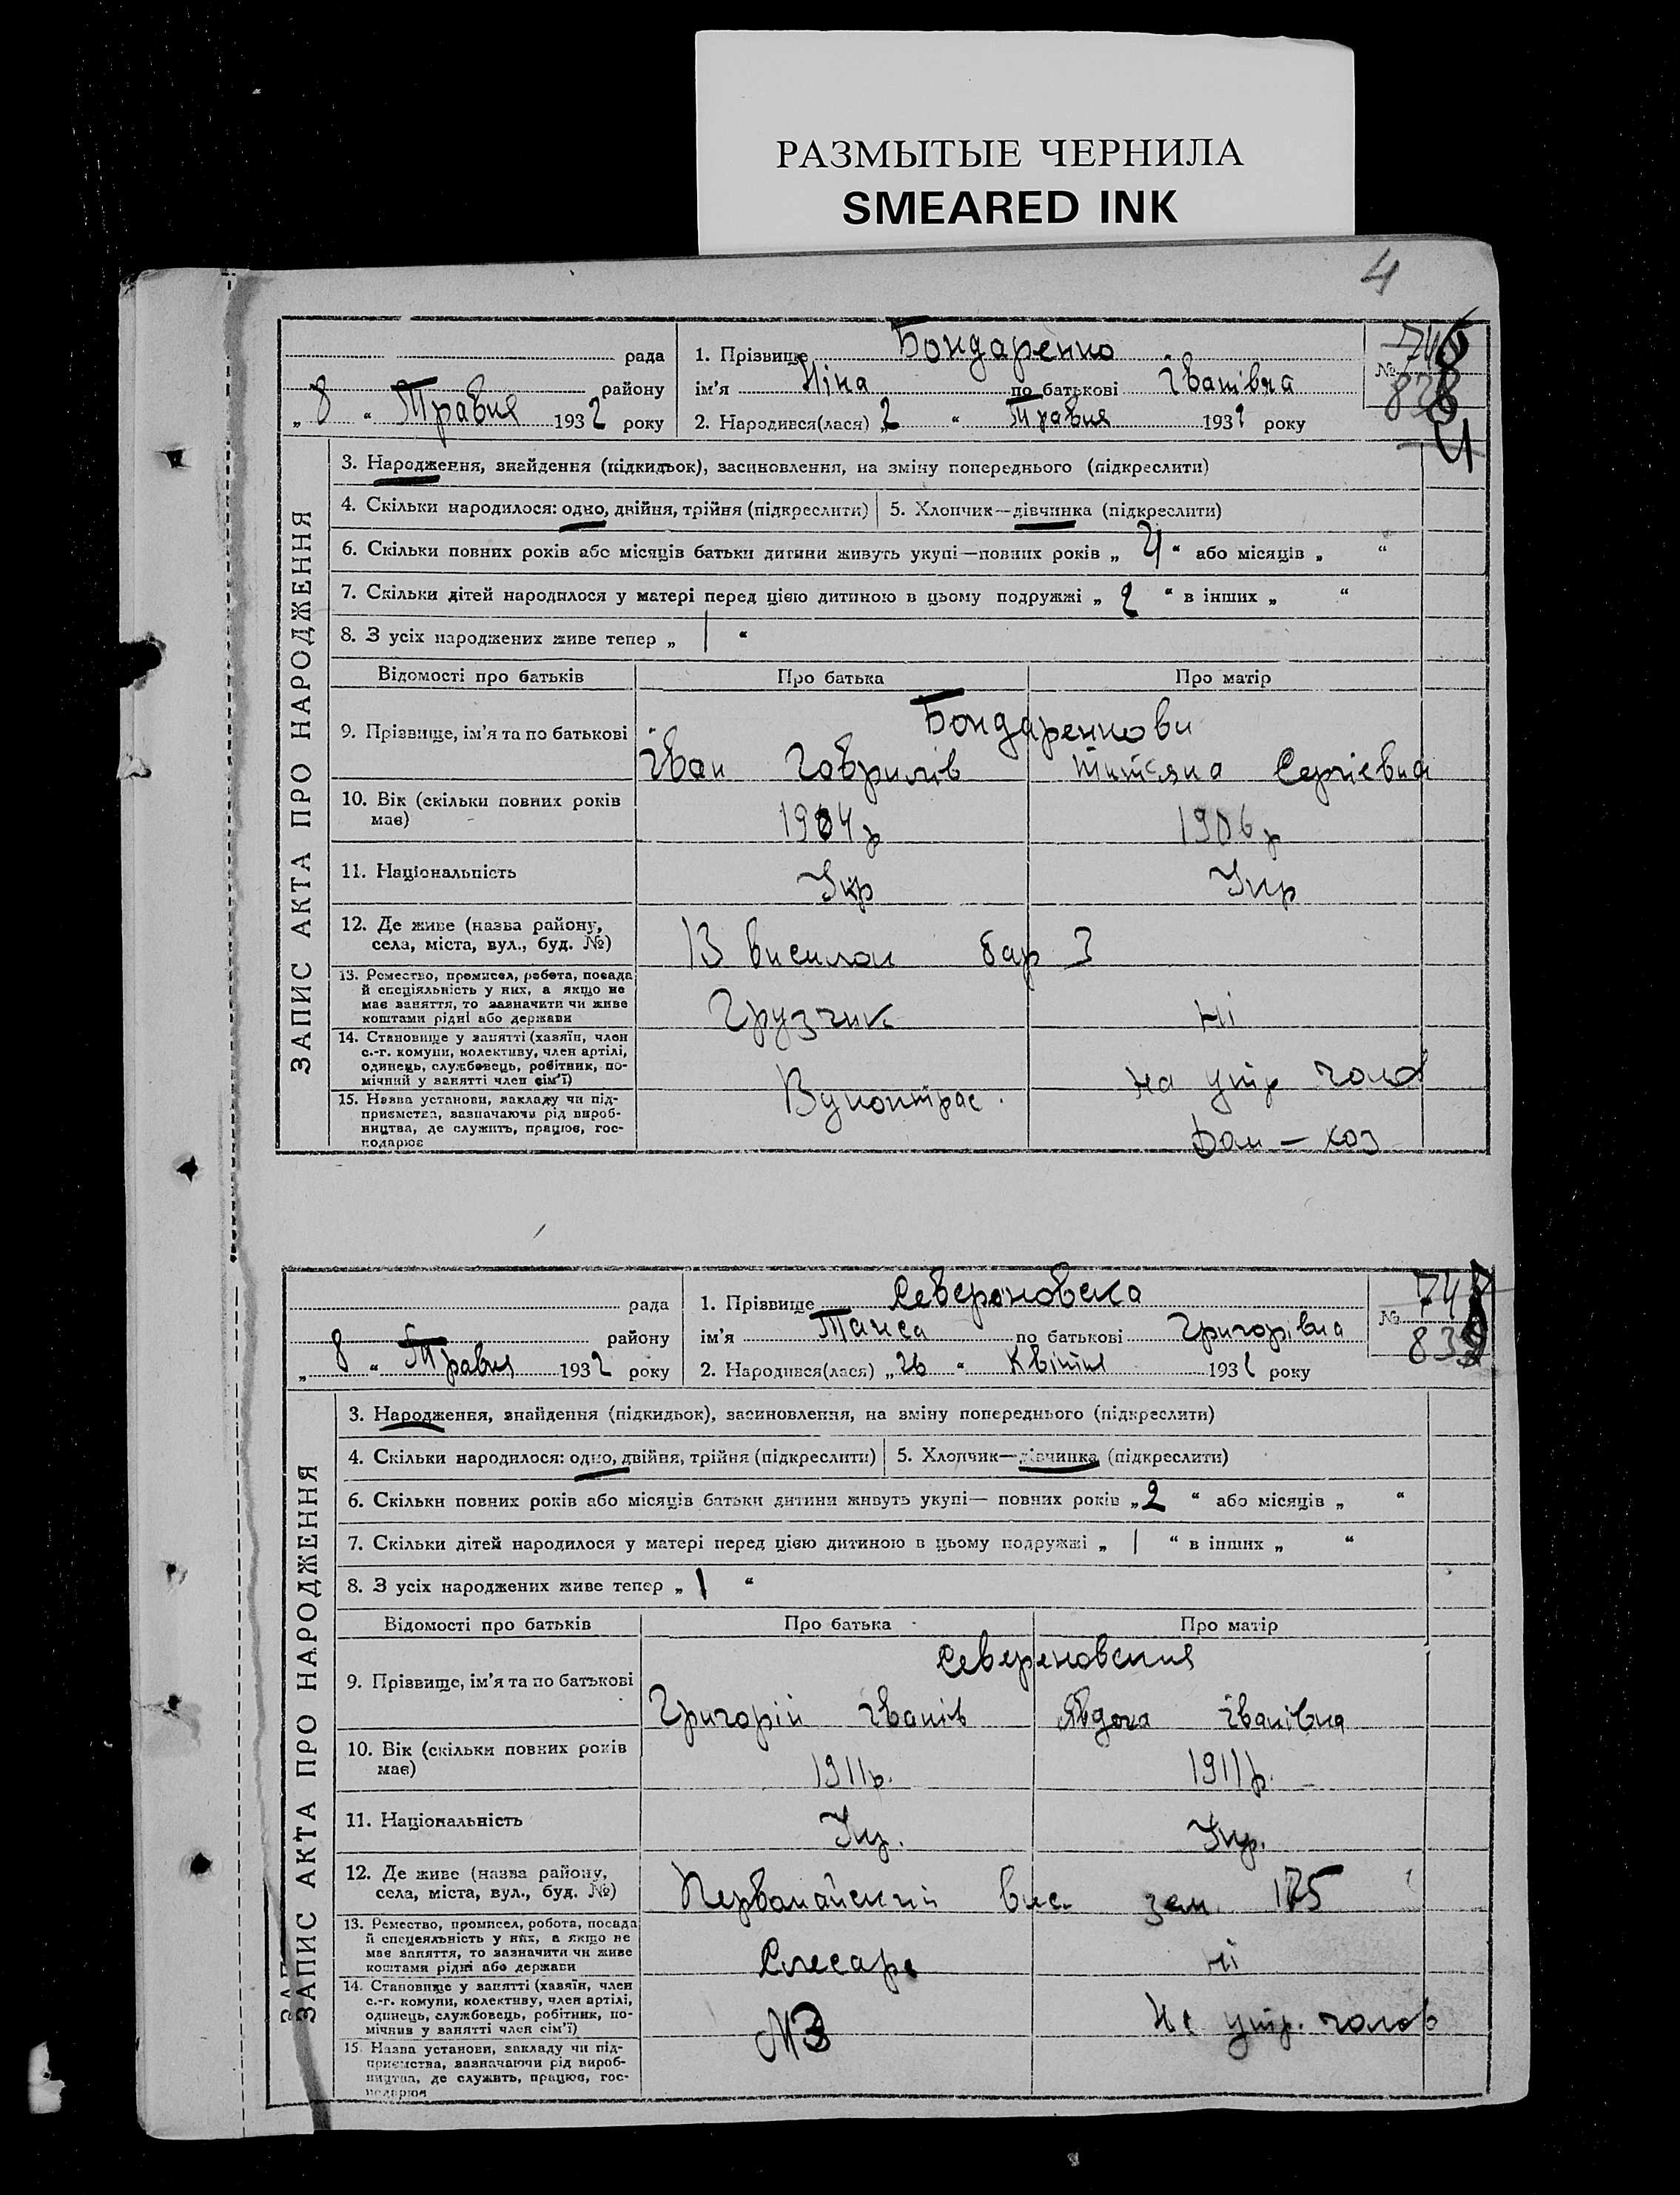 РАЗМЫТЫЕ ЧЕРНИЛА
SMEARED INK
4
рада
району
„ 8 “ Травня 1932 року
1. Прізвище Бондаренко
ім'я Ніна по батькові Іванівна
2. Народився(лася) „2 “ Травня 1932 року
№
ЗАПИС АКТА ПРО НАРОДЖЕННЯ
3. Народження, знайдення (підкидьок), засиновлення, на зміну попереднього (підкреслити)
4. Скільки народилося: одно, двійня, трійня (підкреслити) 5. Хлопчик—дівчинка (підкреслити)
6. Скільки повних років або місяців батьки дитини живуть укупі—повних років „ “ або місяців „ “
7. Скільки дітей народилося у матері перед цією дитиною в цьому подружжі „ 2 “ в інших „ “
8. З усіх народжених живе тепер „ 1 “
Відомості про батьків Про батька Про матір
Бондаренкови
9. Прізвище, ім'я та по батькові
Іван Гаврилів Титяна Сергієвна
10. Вік (скільки повних років має)
1904 р 1906 р
11. Національність Укр Укр
12. Де живе (назва району, села, міста, вул., буд. №)
бар 3
13. Ремество, промисел, робота, посада й спеціяльність у них, а якщо не має заняття, то зазначити чи живе коштами рідні або держави
Грузчик Ні
14. Становище у занятті (хазяїн, член с.-г. комуни, колективу, член артілі, одинець, службовець, робітник, помічний у занятті член сім'ї)
на утр чолов
15. Назва установи, закладу чи підприємства, зазначаючи рід виробництва, де служить, працює, господарює
Дом — хоз
рада
району
„ 8 “ Травня 1932 року
1. Прізвище Севериновска
ім'я Таиса по батькові Григорівна
2. Народився(лася) „26 “ Квітня 1932 року
№
839
ЗАПИС АКТА ПРО НАРОДЖЕННЯ
3. Народження, знайдення (підкидьок), засиновлення, на зміну попереднього (підкреслити)
4. Скільки народилося: одно, двійня, трійня (підкреслити) 5. Хлопчик—дівчинка (підкреслити)
6. Скільки повних років або місяців батьки дитини живуть укупі— повних років „2 “ або місяців „ “
7. Скільки дітей народилося у матері перед цією дитиною в цьому подружжі „ 1 “ в інших „ “
8. З усіх народжених живе тепер „ 1 “
Відомості про батьків Про батька Про матір
9. Прізвище, ім'я та по батькові
Григорій Іванів Явдоха Іванівна
10. Вік (скільки повних років має)
1911р. 1911р.
11. Національність Укр. Укр.
12. Де живе (назва району, села, міста, вул., буд. №)
Первомайский вис. зем. 175
13. Ремество, промисел, робота, посада й спецеяльність у них, а якщо не має заняття, то зазначити чи живе коштами рідні або держави
Слесарь Ні
14. Становище у занятті (хазяїн, член с.-г. комуни, колективу, член артілі, одинець, службовець, робітник, помічник у занятті член сім'ї)
МЗ На утр. чолов
15. Назва установи, закладу чи підприємства, зазначаючи рід виробництва, де служить, працює, господарює